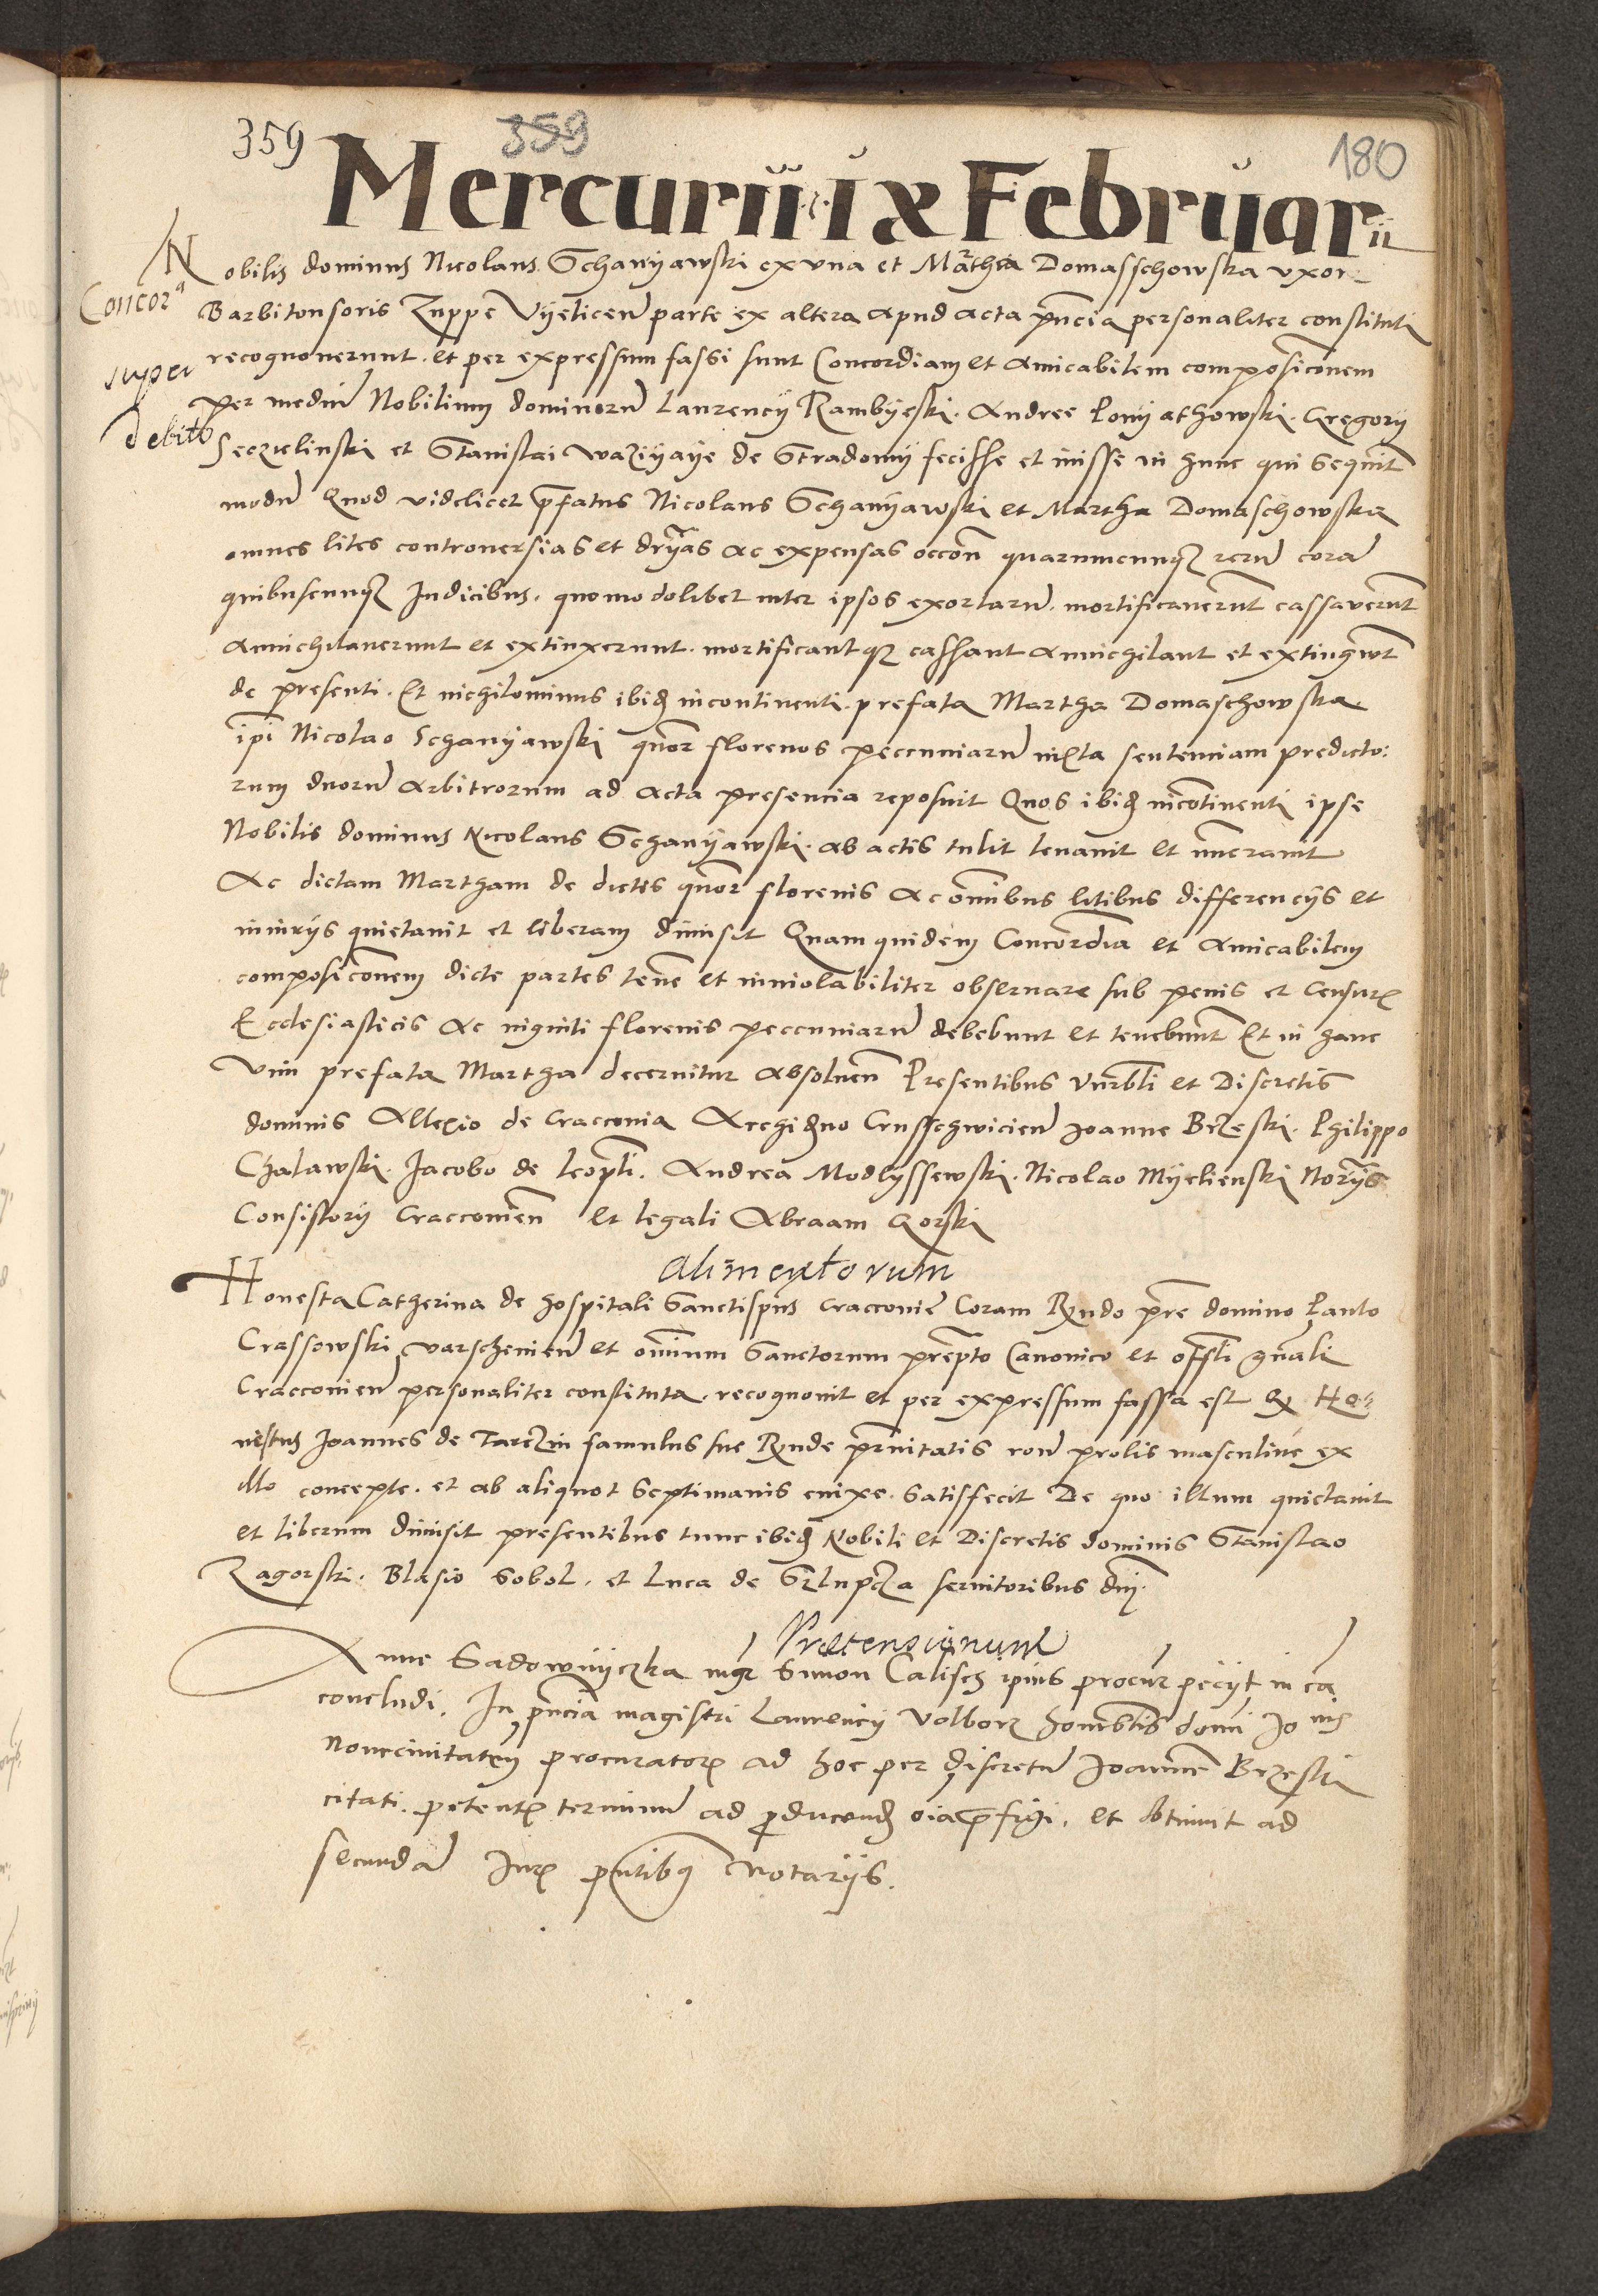 359 359 180
Mercurii ix Februarii
Nobilis dominus Nicolaus Schanyawski ex una et Martha Domasschowska uxor
Concor^a
Barbitonsoris Zuppe Vyelicen parte ex altera apud acta pñcia personaliter constituti
super
recognoverunt. et per expressum fassi sunt Concordiam et amicabilem composicõnem
debito
per mediũ Nobilium dominorũ Laurencÿ Rambyeski. Andree Ponyathowski. Gregorÿ
Seczielinski et Stanislai de Stradomy fecisse et inisse in hunc qui sequit̃
modũ Quod videlicet p̃fatus Nicolaus Schanyawski et Martha Domaschowska
omnes lites controversias et dr̃ias ac expensas occõn quarumcunqz rerũ corã
quibuscunqz Judicibus. quomodolibet inter ipsos exortarũ. mortificaverunt̃ cassaverunt̃
annichilaverunt et extinxerunt. mortificantqz cassant annichilant et extingwt̃
de presenti. Et nichilominus ibidẽ incontinenti. prefata Martha Domaschowska
ip̃i Nicolao Schanyawski quor̃ florenos peccuniarũ iuxta sentenciam predicto:
rum duorũ arbitrorum ad acta presencia reposuit Quos ibidẽ incõtinenti ipse
Nobilis dominus Nicolaus Schanyawski. ab actis tulit levavit et nũeravit
Ac dictam Martham de dictis quor̃ florenis ac om̃ibus litibus differencÿs et
iniurÿs quietavit et liberam dimisit Quam quidem Concordiã et amicabilem
composicõnem dicte partes tenẽ et inviolabiliter observare sub penis et Censur̃
Ecclesiasticis ac viginti florenis peccuniarũ debebunt et tenebunt̃ Et in hanc
vim prefata Martha decernitur absolven̄ Presentibus Vnrbli et Discretis
dominis Allexio de Cracovia Archidno Crusschwicien̄ Joanne Brzeski. Philippo
Chalawski. Jacobo de Leopli. Andrea Modlyssewski. Nicolao Myelienski Norÿs
Consistorÿ Cracovien̄ et legali Abraam Gorski
Alimentorum
Honesta Catherina de hospitali Sanctispũs Cracovie Coram Rndo pr̃e domino Paulo
Crassowski varschevien̄ et om̃ium Sanctorum prepto Canonico et offli gñali
Cracovien̄ personaliter constituta. recognovit et per expressum fassa est qz Ho
nestus Joannes de Tarczin famulus sue Rnde pr̃nitatis rõne prolis masculine ex
illo concepte. et ab aliquot septimanis enixe. satisfecit De quo illum quietavit
et liberum dimisit presentibus tunc ibidẽ Nobili et Discretis dominis Stanislao
Zagorski. Blasio Sobol. et Luca de servitoribus dni.
Prætensionum
Anne Sadownyczka mgr Simon Calisch ipius procur̃ pecÿt in cã
concludi. In pñcia magistri Laurencÿ Volborz honorblis domi Jo nis
Novecivitatem procurator̃ ad hoc per discretũ Joannẽ Brzeski
citati. petent̃ terminũ ad producend̃ oia p̃figi. et obtinuit ad
secundã Jur̃ pñtibus Notarÿs.